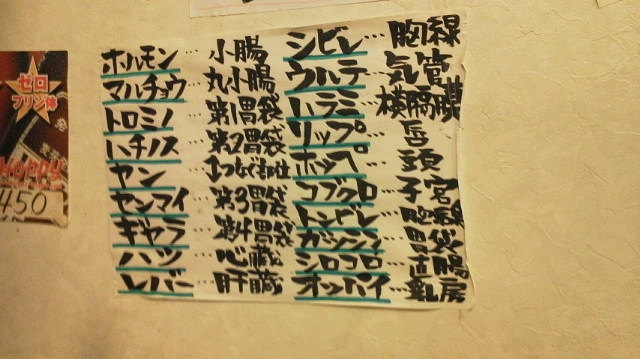 ゼロ
プリン体
Hoppy
450
ホルモン…小腸
マルチョウ…丸小腸
トロミノ…第1胃袋
ハチノス…第2胃袋
ヤン…1つなぐ部位
センマイ…第3胃袋
ギャラ…第4胃袋
ハツ…心臓
レバー…肝臓
シビレ…胸線
ウルテ…気管
ハラミ…横隔膜
リップ…唇
ホッペ…頭
コブクロ…子宮
トンビレ…胸線
ガツシン…胃袋
シロコロ…直腸
オッパイ…乳房